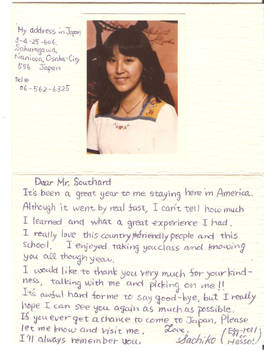 My address in Japan
3-4-25-606,
Sakuragawa,
Naniwa, Osaka-City
556 Japan
Tel #
06-562-6325
Dear Mr. Southard
It's been a great year to me staying here in America.
Although it went by real fast, I can't tell how much
I learned and what a great experience I had.
I really love this country, friendly people and this
school. I enjoyed taking you class and knowing
you all though year.
I would like to thank you very much for your kind-
ness, talking with me and picking on me!!
It's awful hard for me to say good-bye, but I really
hope I can see you again as much as possible.
If you ever get a chance to come to Japan, Please
let me know and visit me. Love,
I'll always remember you. Sachiko (Egg-roll or Hassel)